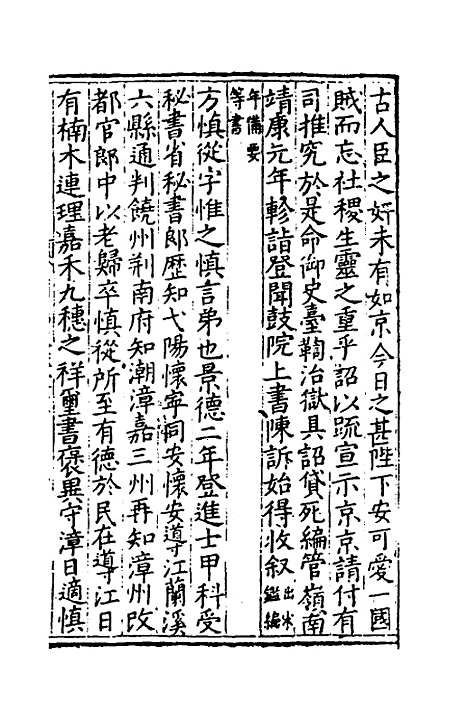 古人臣之奸未有如京今日之甚陛下安可愛一國
賊而忘社稷生靈之重乎詔以䟽宣示京京請付有
司推究於是命御史臺鞫治獄具詔貸死編管嶺南
靖康元年軫詣登聞鼓院上書陳訴始得收叙出宋鑑編
年備要等書
方慎從字惟之慎言弟也景德二年登進士甲科受
秘書省秘書郎歷知弋陽懷寧同安懷安導江蘭溪
六縣通判饒州荆南府知潮漳嘉三州再知漳州改
都官郎中以老歸卒慎從所至有德於民在導江日
有楠木連理嘉禾九穗之祥璽書褒異守漳日適慎